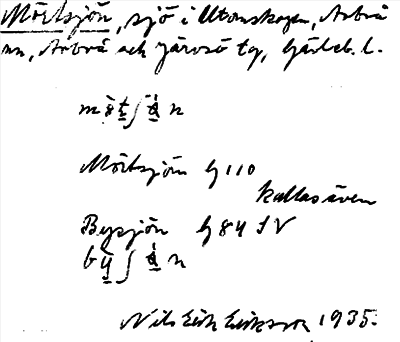 Mörtsjön, sjö i Utomskogen, Arbrå
sn, Arbrå och Järvsö tg, Gävleb. l.
Mörtsjön G 110
kallas även
Bysjön G 84 SV
Nils Erik Eriksson 1935.